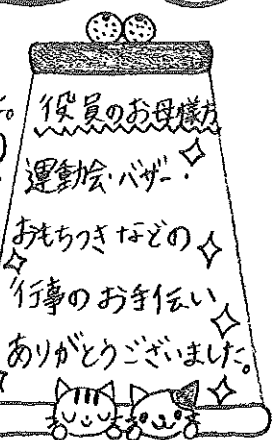 役員のお母様方
運動会・バザー・
おもちつきなどの
行事のお手伝い
ありがとうございました。